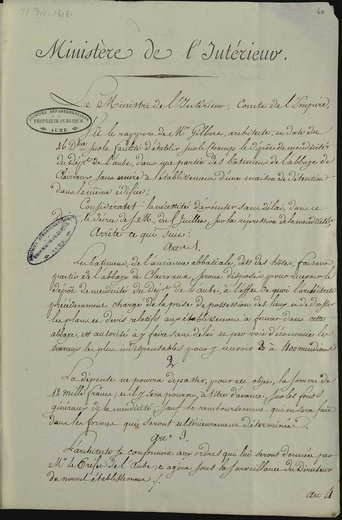 31 Dec. 1808.
40
Ministère de l'Intérieur.
Le Ministre de l'Intérieur, Comte de l'Empire,
Vu le rapport de Mr. Gilbert, architecte, en date du
26 Xbre sur la faculté d'établir, sur le champ le dépôt de mendicité
du Dépt. de l'Aube, dans une partie des bâtimens de l'abbaye de
Clairvaux sans nuire à l'établissement d'une maison de détention
dans le même édifice;
Considérant la nécessité d'exécuter sans délai, dans ce
le décret de S.M. du 5 Juillet, sur la répression de la mendicité,
Arrête ce qui suit:
Art. 1.
Les bâtimens de l'ancienne abbatiale, des hôtes, faisant
partie de l'abbaye de Clairvaux, seront disposés pour recevoir le
dépôt de mendicité du Dépt. de l'Aube, à l'effet de quoi l'architecte
précédemment chargé de la prise de possession des lieux et de
les plans et devis relatifs aux établissemens à former dans cette
abbaye, est autorisé à y faire sans délai et par voie d'économie les
travaux les plus indispensables pour y recevoir 3 à 400 mendians
2
La dépense ne pourra dépasser, pour cet objet, la somme de
12 mille francs, et il y sera pourvu, à titre d'avance, sur les fonds
généraux de la mendicité sauf le remboursement qui en sera fait
dans les formes qui seront ultérieurement déterminées.
Art. 3.
L'architecte se conformera aux ordres qui lui seront donnés par
Mr. le Préfet de l'Aube, et agira sous la surveillance du Directeur
du nouvel établissement.
Art. 4
ARCHIVES DÉPARTEMENTALES
PROPRIÉTÉ PUBLIQUE
AUBE